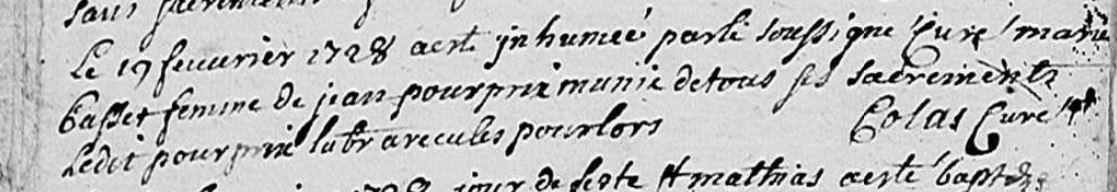 sans sacrements
Le 19 feuurier 1728 aesté jnhumée parle soussigné Curé marie
basset femme de jean pourprix munie detous ses sacrements
Ledit pourprix labr arecules pourlors Colas Curé
1728 jour de feste st mathias aesté bapt